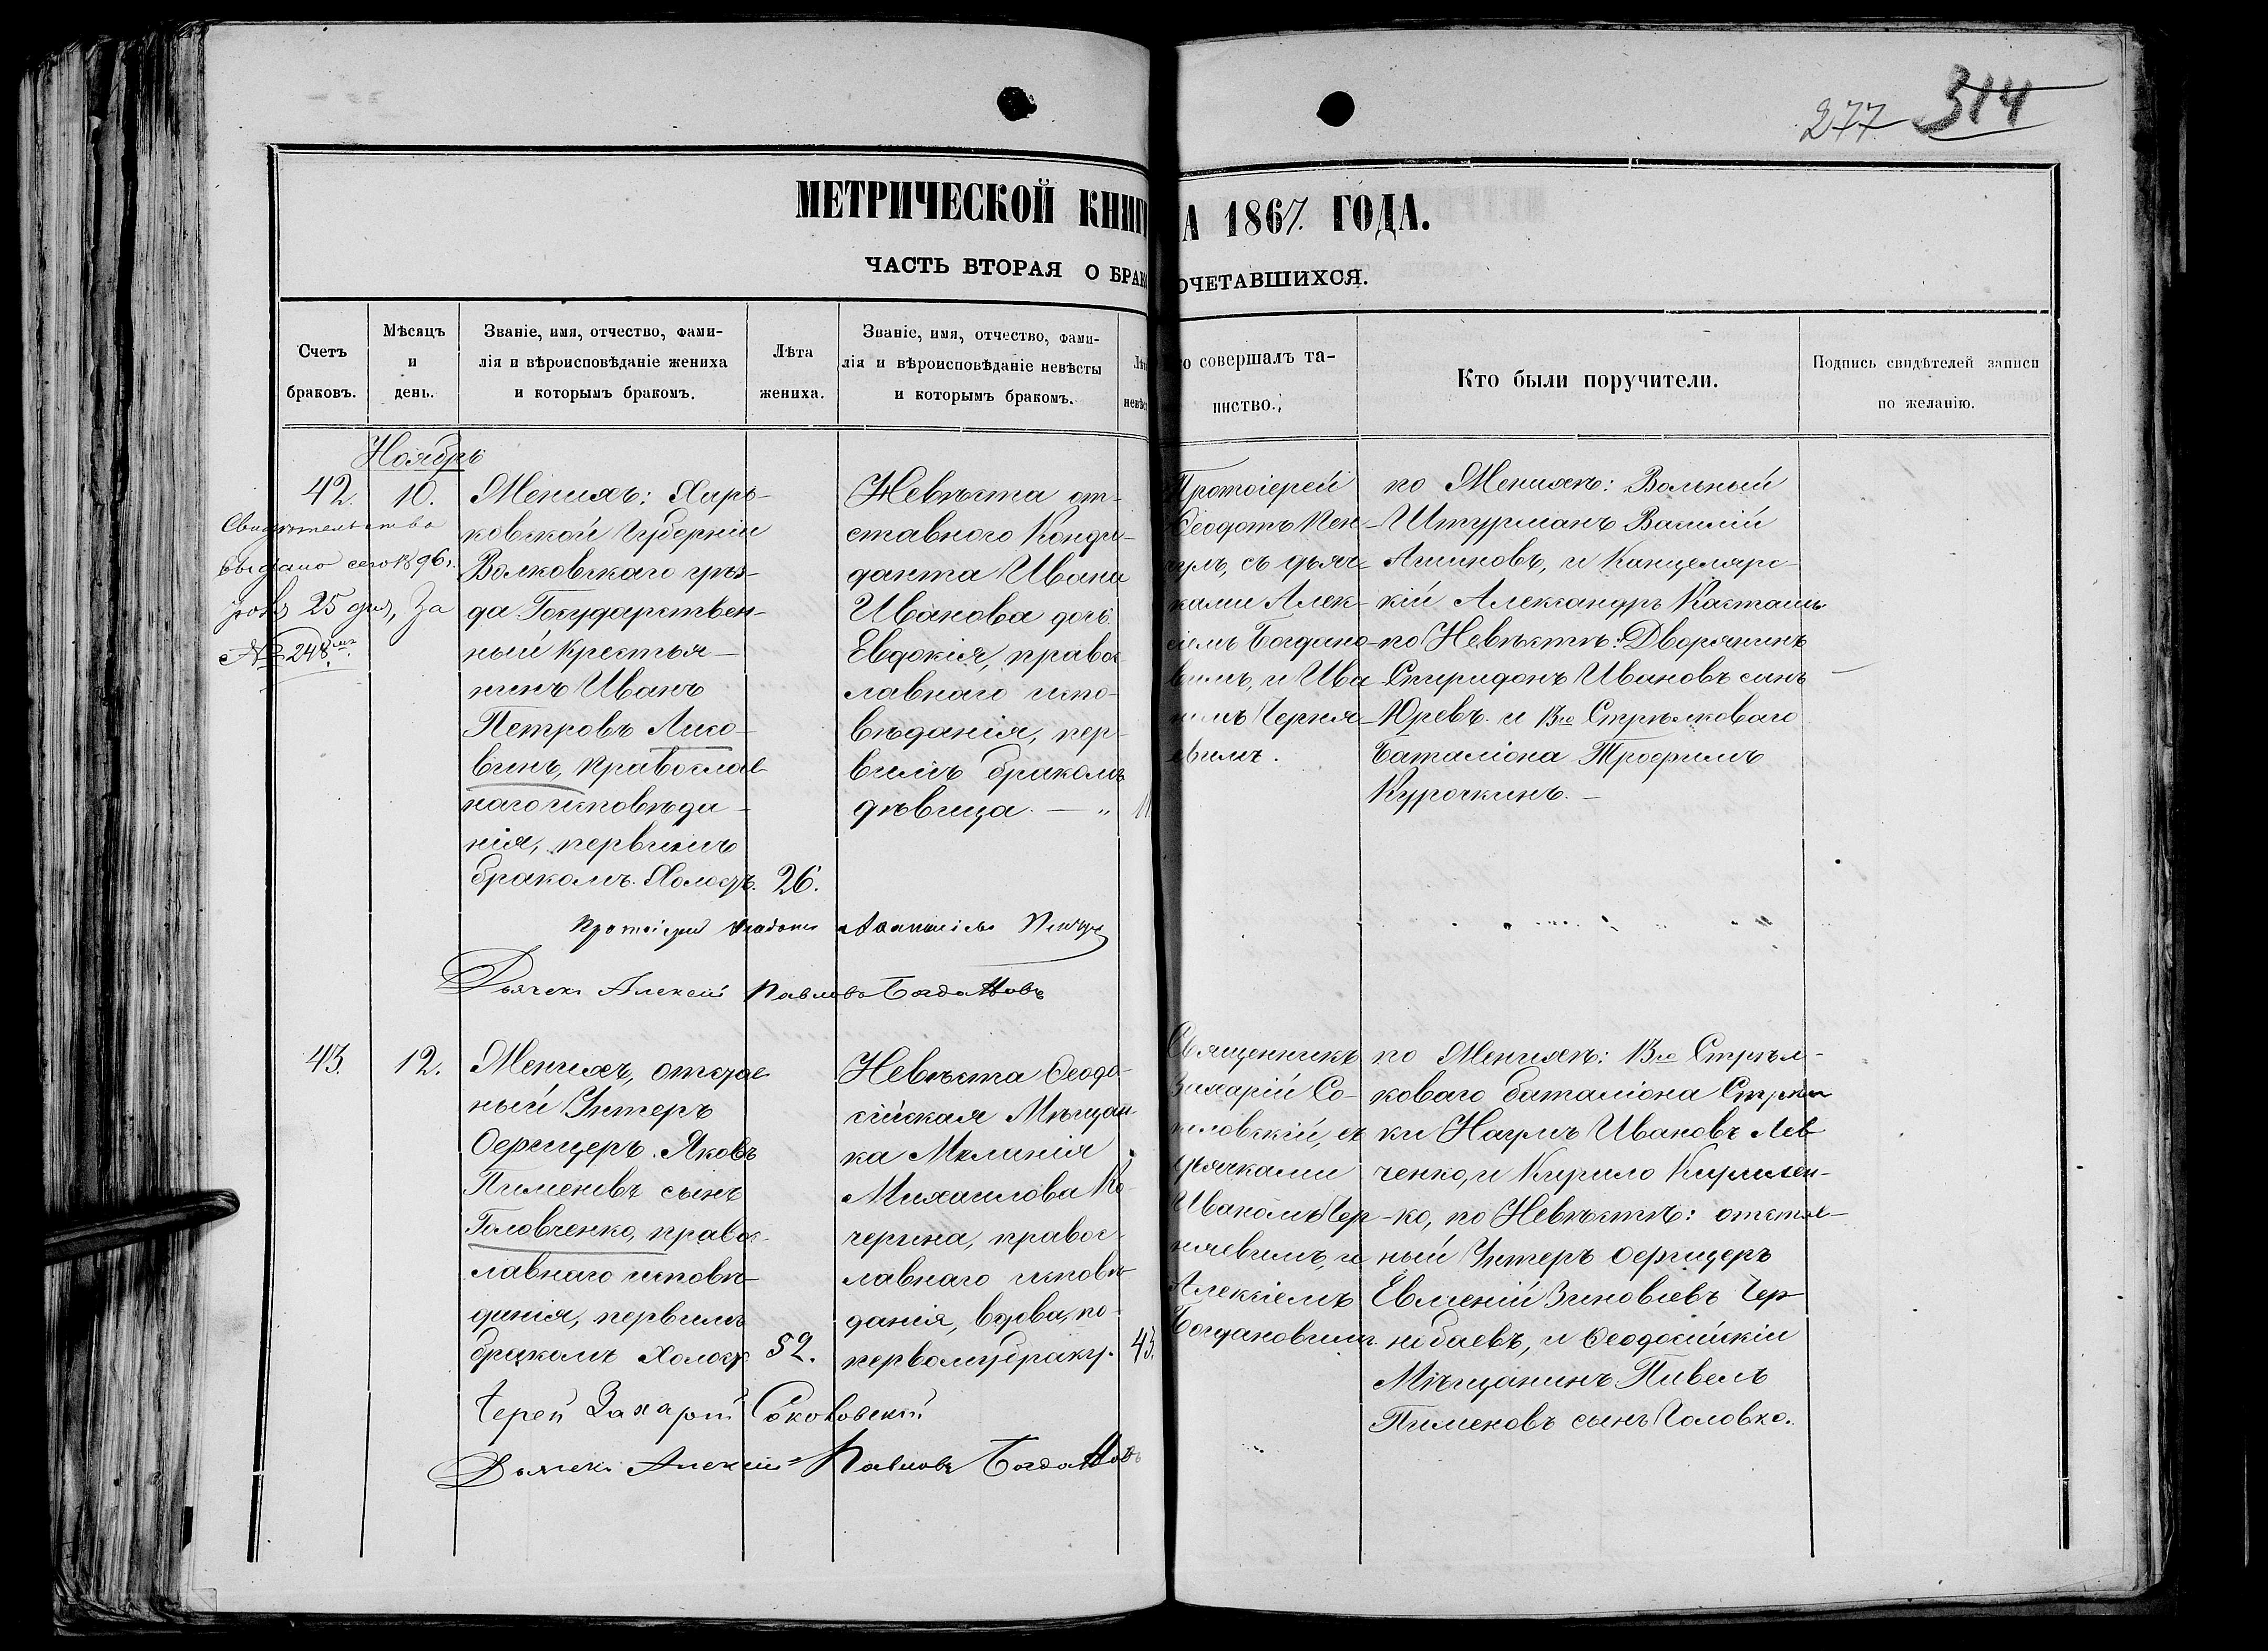 277 314
МЕТРИЧЕСКОЙ КНИГ
А 1867. ГОДА.
ЧАСТЬ ВТОРАЯ О БРАК
ОЧЕТАВШИХСЯ.
Счетъ
браковъ.
Мѣсяцъ
и
день.
Званіе, имя, отчество, фами-
лія и вѣроисповѣданіе жениха
и которымъ бракомъ.
Лѣта
жениха.
Званіе, имя, отчество, фами-
лія и вѣроисповѣданіе невѣсты
и которымъ бракомъ.
Лѣт
невѣс
о совершалъ та-
инство.
Кто были поручители.
Подпись свидѣтелей записи
по желанію.
Ноябрь
42. 10.
Свидѣтельство
выдано сего 1896 г.
25 дня, за
№ 248
Женихъ: Харь-
ковской Губерніи
Волковскаго уѣз-
да Государствен-
ный крестья-
нинъ Иванъ
Петровъ Лихо-
винъ, православ-
наго исповѣда-
нія, первымъ
бракомъ. Холостъ. 26.
Невѣста от-
ставного Конду-
данта Ивана
Иванова дочь
Евдокія, правос-
лавнаго испо-
вѣданія, пер-
вымъ бракомъ
дѣвица. — „
Протоіерей
Ѳеодотъ Пен-
чулъ, съ дьяч-
ками Алек-
сіемъ Богдано-
вымъ, и Ива-
номъ Черня-
евымъ.
по Женихѣ: Вольный
Штурманъ Василій
Ашиновъ, и Канцелярс-
кій Александръ Касташъ
по Невѣстѣ: Дворянинъ
Спиридонъ Ивановъ сынъ
Юревъ. и 13го Стрѣлковаго
Баталіона Трофимъ
Курочкинъ. —
Протоіерей Ѳеодотъ Пенчулъ
Дьячекъ Алексій Павловъ Богдановъ
43. 12.
Женихъ, отстав-
ный Унтеръ
Офицеръ. Яковъ
Пименивъ сынъ
Головченко, правос-
лавнаго исповѣ-
данія, первымъ
бракомъ холост 52.
Невѣста Ѳеодо-
сійская Мѣщан-
ка Меланія
Михаилова Ко-
черина, правос-
лавнаго исповѣ-
данія, вдова, по
первому браку. 43.
Священникъ
Захарій Со-
коловскій, съ
дьячками
Иваномъ Чер-
няевымъ, и
Алексіемъ
Богдановымъ.
по Женихѣ: 13го Стрѣл-
коваго баталіона Стрѣл
ки Наумъ Ивановъ Лев
ченко, и Кирило Кирилен-
ко, по Невѣстѣ: отстав-
ный Унтеръ Офицеръ
Евменій Зиновіевъ Чер
нобаевъ, и Ѳеодосійскій
Мѣщанинъ Павелъ
Пименовъ сынъ Головко.
Іерей Захарій Соколовскій
Дьячекъ Алексій Павловъ Богдановъ